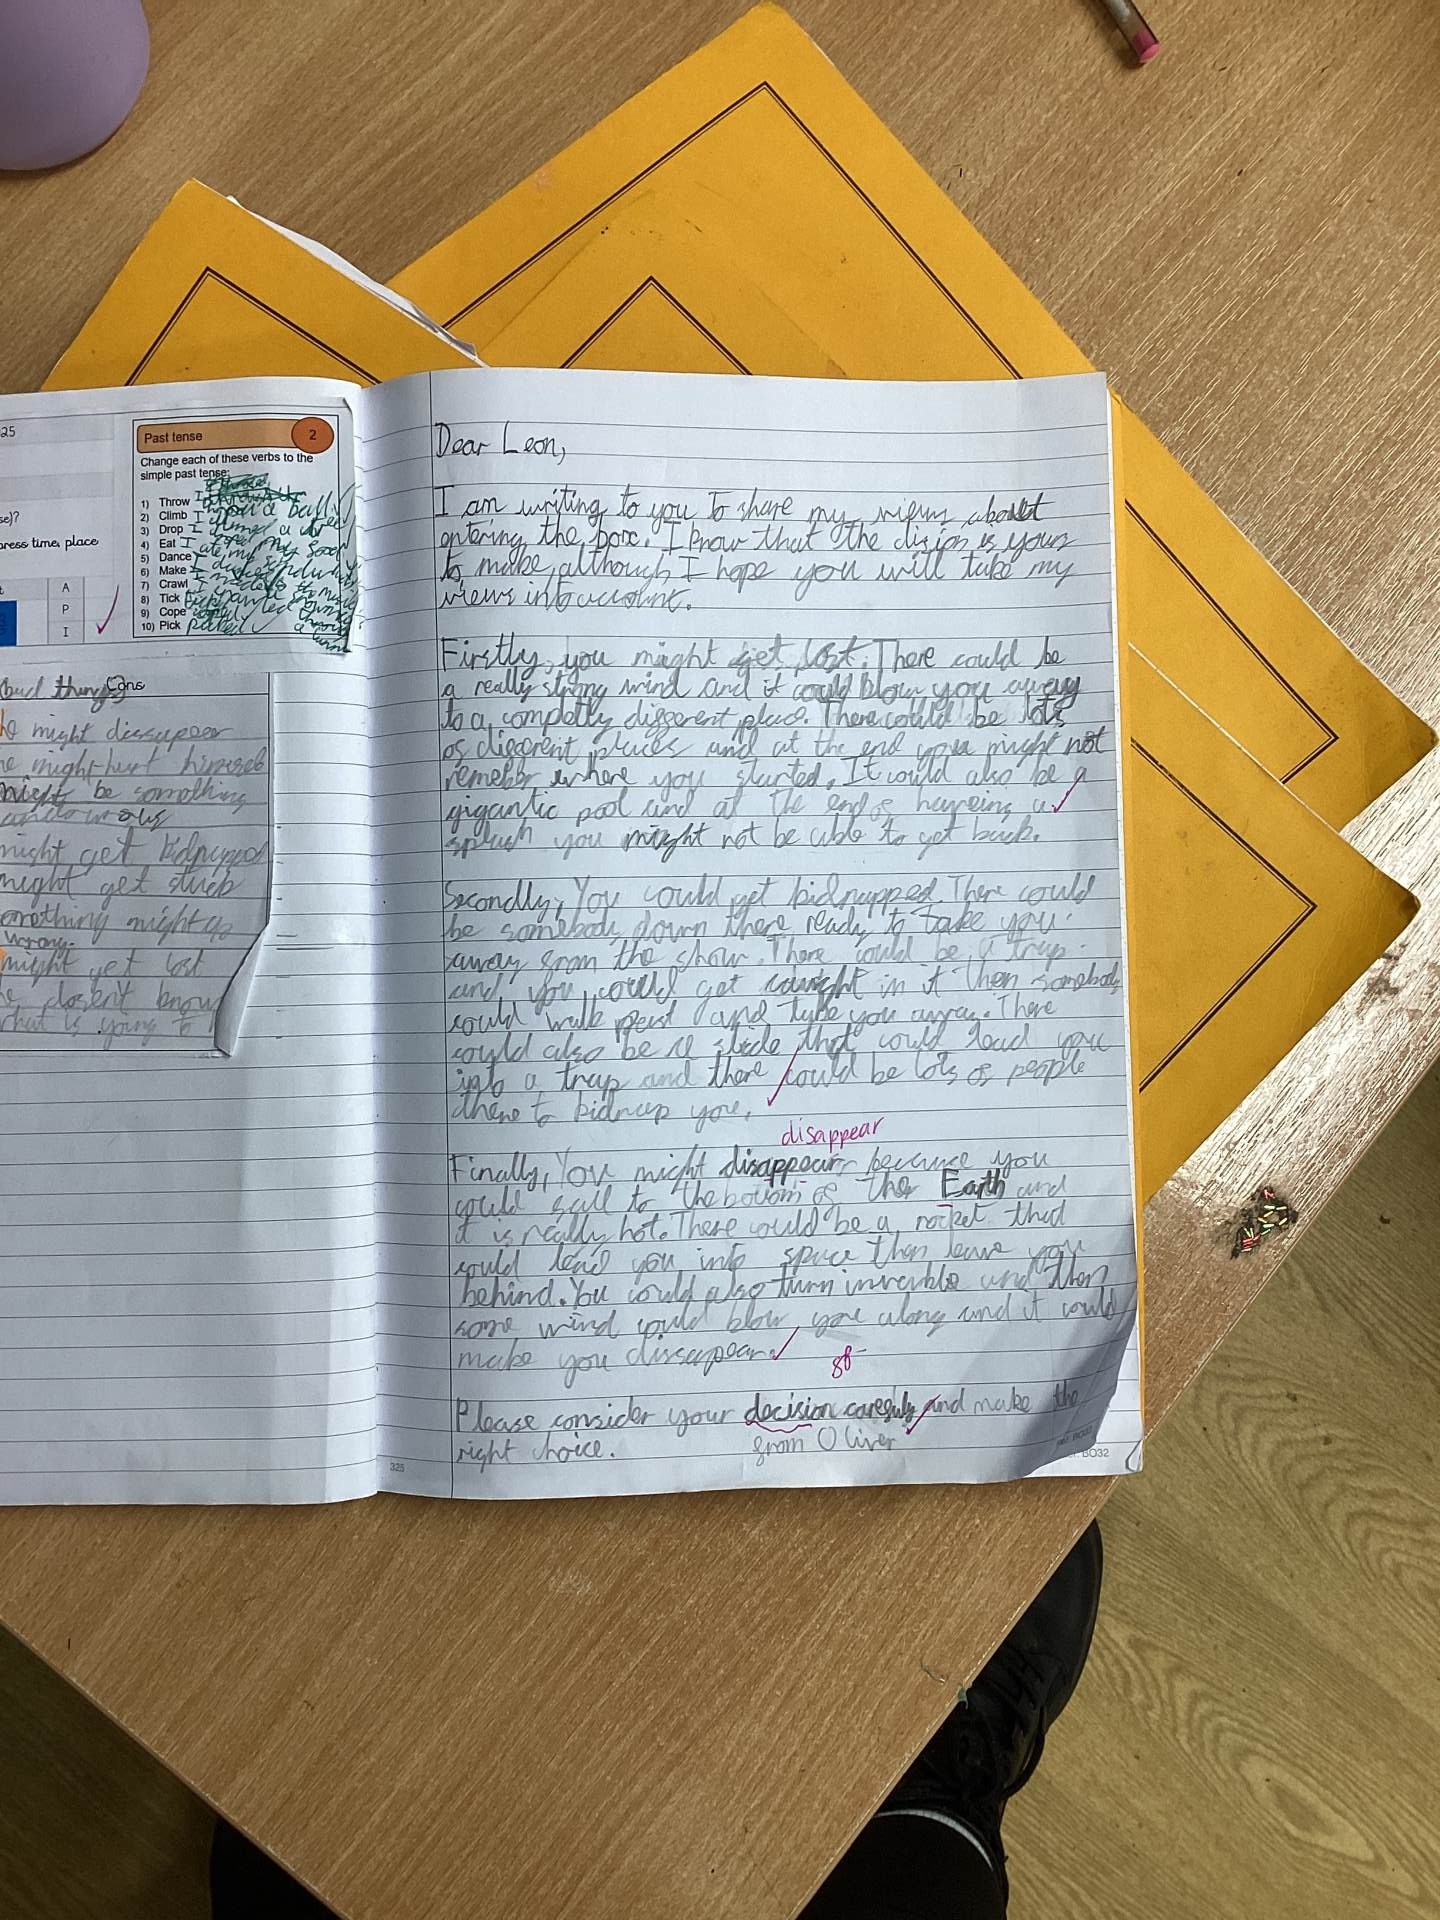 25
se)?
press time, place
A
P
I
Past tense
2
Change each of these verbs to the
simple past tense:
1) Throw I threw a ball
2) Climb I climed a tree
3) Drop I
4) Eat I ate my
5) Dance I
6) Make I
7) Crawl I
8) Tick
9) Cope
10) Pick picked
(bad things) Cons
he might dissapear
he might hurt himself
might be something
might get kidnapped
might get stuck
something might go
wrong.
might get lost
he dosen't know
what is going to
Dear Leon,
I am writing to you to share my views about
entering the box. I know that the dision is yours
to make, although I hope you will take my
views into account.
Firstly, you might get lost. There could be
a really strong wind and it could blow you away
to a completly different place. There could be lots
of different places and at the end you might not
remebr where you started. It could also be a
gigantic pool and at the end of haveing a
splash you might not be able to get back.
Secondly, You could get kidnapped. There could
be somebody down there ready to take you
away from the show. There could be a trap
and you could get caught in it then somebody
could walk past and take you away. There
could also be a slide that could lead you
into a trap and there could be lots of people
there to kidnap you.
disappear
Finally, You might disappear because you
could fall to the bottom of the Earth and
it is really hot. There could be a rocket that
could lead you into space then leave you
behind. You could also turn invesible and then
some wind could blow you along and it could
make you dissapear.
Please consider your decision carefuly and make the
right choice.
from Oliver
325
BO32